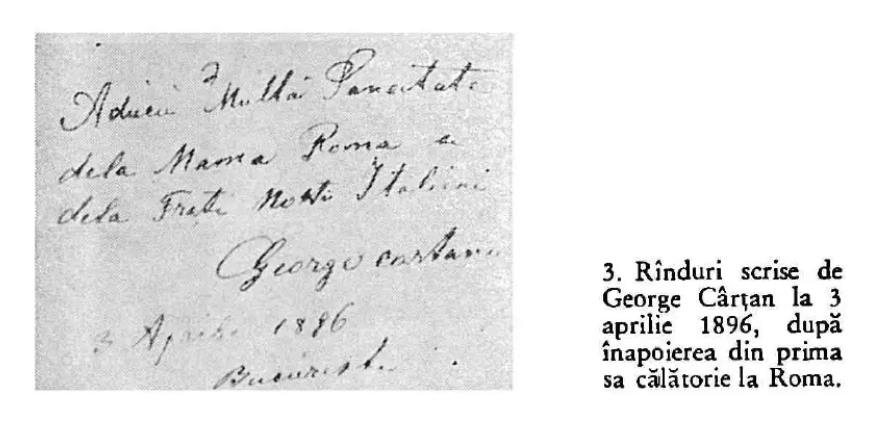 Aducu Multă Sanatate
dela Mama Roma e
dela Frați Noști Italieni
George cartanu
3 Aprilie 1896
Bucuresti.
3. Rînduri scrise de
George Cârțan la 3
aprilie 1896, după
înapoierea din prima
sa călătorie la Roma.